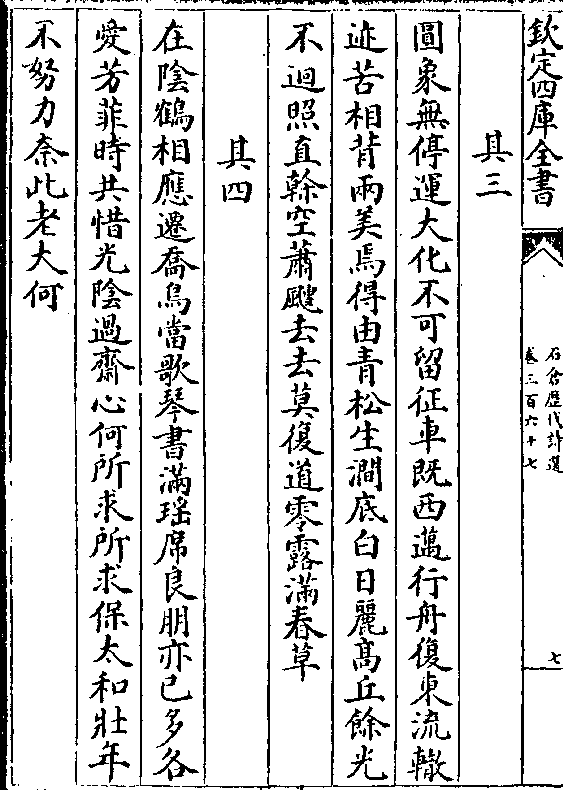 欽定四庫全書
石倉歷代詩選
卷三百六十七
七
其三
圓象無停運大化不可留征車既西邁行舟復東流轍
迹苦相背兩美焉得由青松生澗底白日麗高丘餘光
不迴照直榦空蕭颼去去莫復道零露滿春草
其四
在陰鶴相應遷喬鳥當歌琴書滿瑶席良朋亦已多各
愛芳菲時共惜光陰過齋心何所求所求保太和壯年
不努力奈此老大何